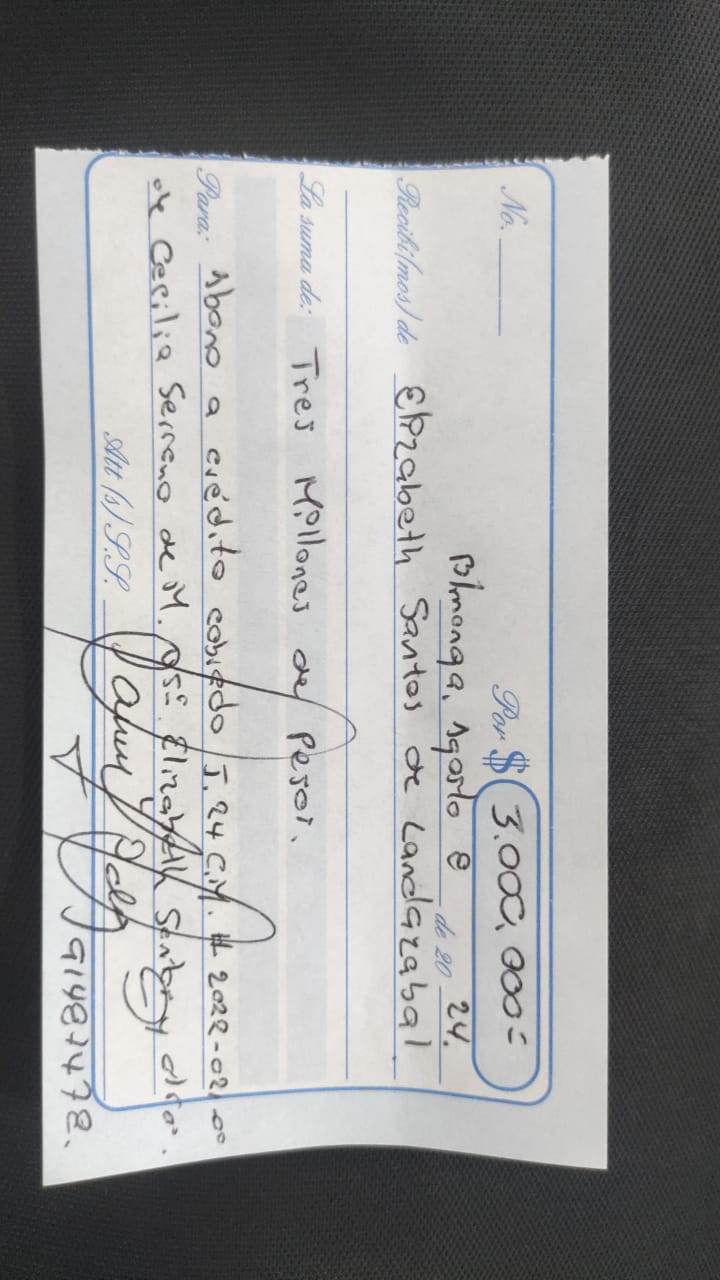 No. Por $ 3.000.000=
B/manga, Agosto 8 de 20 24.
Recibí(mos) de Elizabeth Santos de Landazabal
La suma de: Tres Millones de Pesos.
Para: Abono a crédito cobrado J. 24 C.M. # 2022-021.00
de Cecilia Serrano de M. Elizabeth
Att (s) S.S.
91487478.